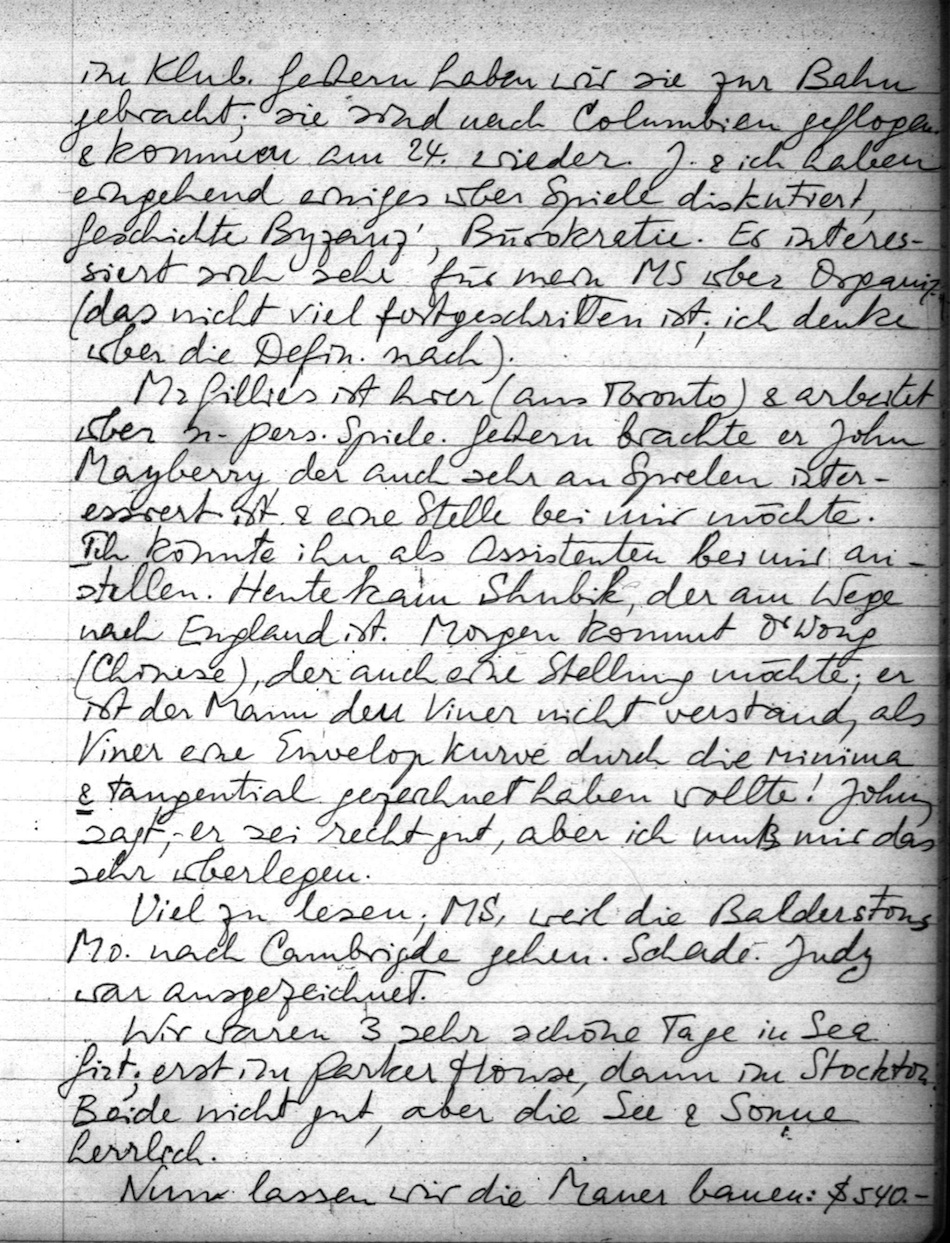 im Klub. Gestern haben wir sie zur Bahn
gebracht; sie sind nach Columbien geflogen
& kommen am 24. wieder. J. & ich haben
eingehend einiges über Spiele diskutiert,
Geschichte Byzanz', Bürokratie. Er interes-
siert sich sehr für mein MS über Organiz.
(das nicht viel fortgeschritten ist; ich denke
über die Defin. nach).
Mr Gillies ist hier (aus Toronto) & arbeitet
über n-pers. Spiele. Gestern brachte er John
Mayberry der auch sehr an Spielen inter-
essiert ist & eine Stelle bei mir möchte.
Ich könnte ihn als Assistenten bei mir an-
stellen. Heute kam Shubik, der am Wege
nach England ist. Morgen kommt Dr Wong
(Chinese), der auch eine Stellung möchte; er
ist der Mann den Viner nicht verstand, als
Viner eine Envelop kurve durch die Minima
& tangential gezeichnet haben wollte! Johny
sagt, er sei recht gut, aber ich muß mir das
sehr überlegen.
Viel zu lesen; MS, weil die Balderstons
Mo. nach Cambrigde gehen. Schade. Judy
war ausgezeichnet.
Wir waren 3 sehr schöne Tage in Sea
Girt; erst im Parker House, dann im Stockton.
Beide nicht gut, aber die See & Sonne
herrlich.
Nun lassen wir die Mauer bauen: $540.-